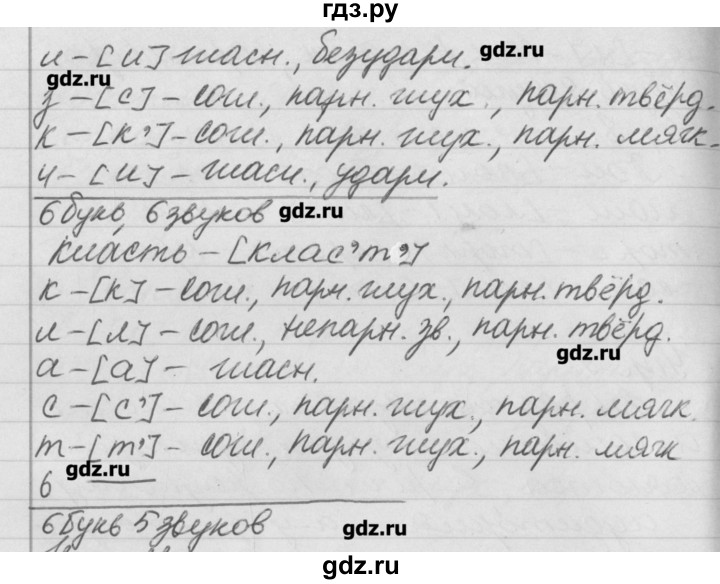 гдз.ру
и – [и] гласн., безударн.
gdz.ru
gdz.ru
з – [с] – согл., парн. глух., парн. твёрд.
к – [к'] – согл., парн. глух., парн. мягк.
и – [и] – гласн., ударн.
6 букв, 6 звуков gdz.ru
Класть – [клас'т']
к – [к] – согл., парн. глух., парн. твёрд.
л – [л] – согл., непарн. зв., парн. твёрд.
gdz.ru
а – [а] – гласн.
с – [с'] – согл., парн. глух., парн. мягк.
т – [т'] – согл., парн. глух., парн. мягк
gdz.ru
6
6 букв 5 звуков gdz.ru
gdz.ru